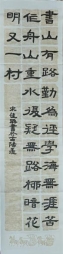 書山有路勤為逕學海無涯苦
作舟山重水複疑無路柳暗花
明又一村